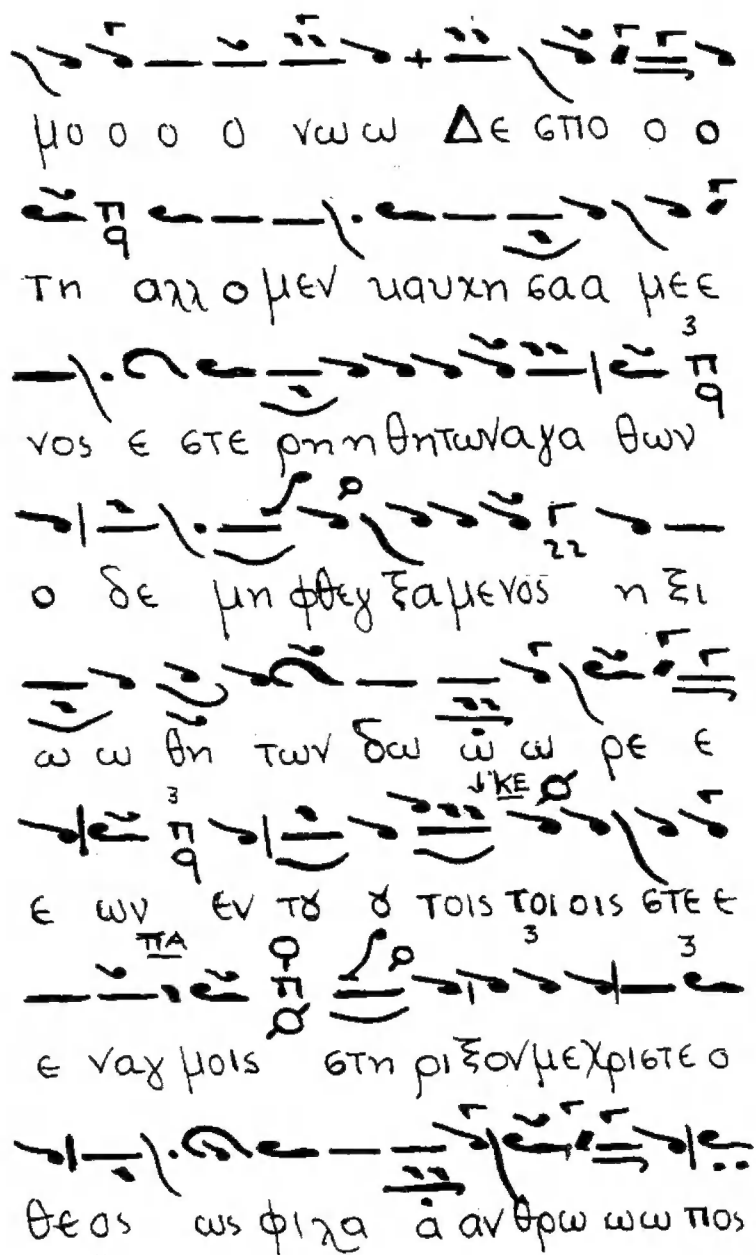 μο ο ο ο νω ω Δε σπο ο ο
τη αλλ ο μεν καυχη σαα με ε
3
νος ε στε ρη η θη των αγα θων
ο δε μη φθεγ ξα με νος η ξι
ω ω θη των δω ω ω ρε ε
3 ΚΕ
ε ων εν τȣ ȣ τοις τοι οις στε ε
ΠΑ 3 3
ε ναγ μοις στη ρι ξον με χρι στε ο
θε ος ως φι λα α αν θρω ω ω πος